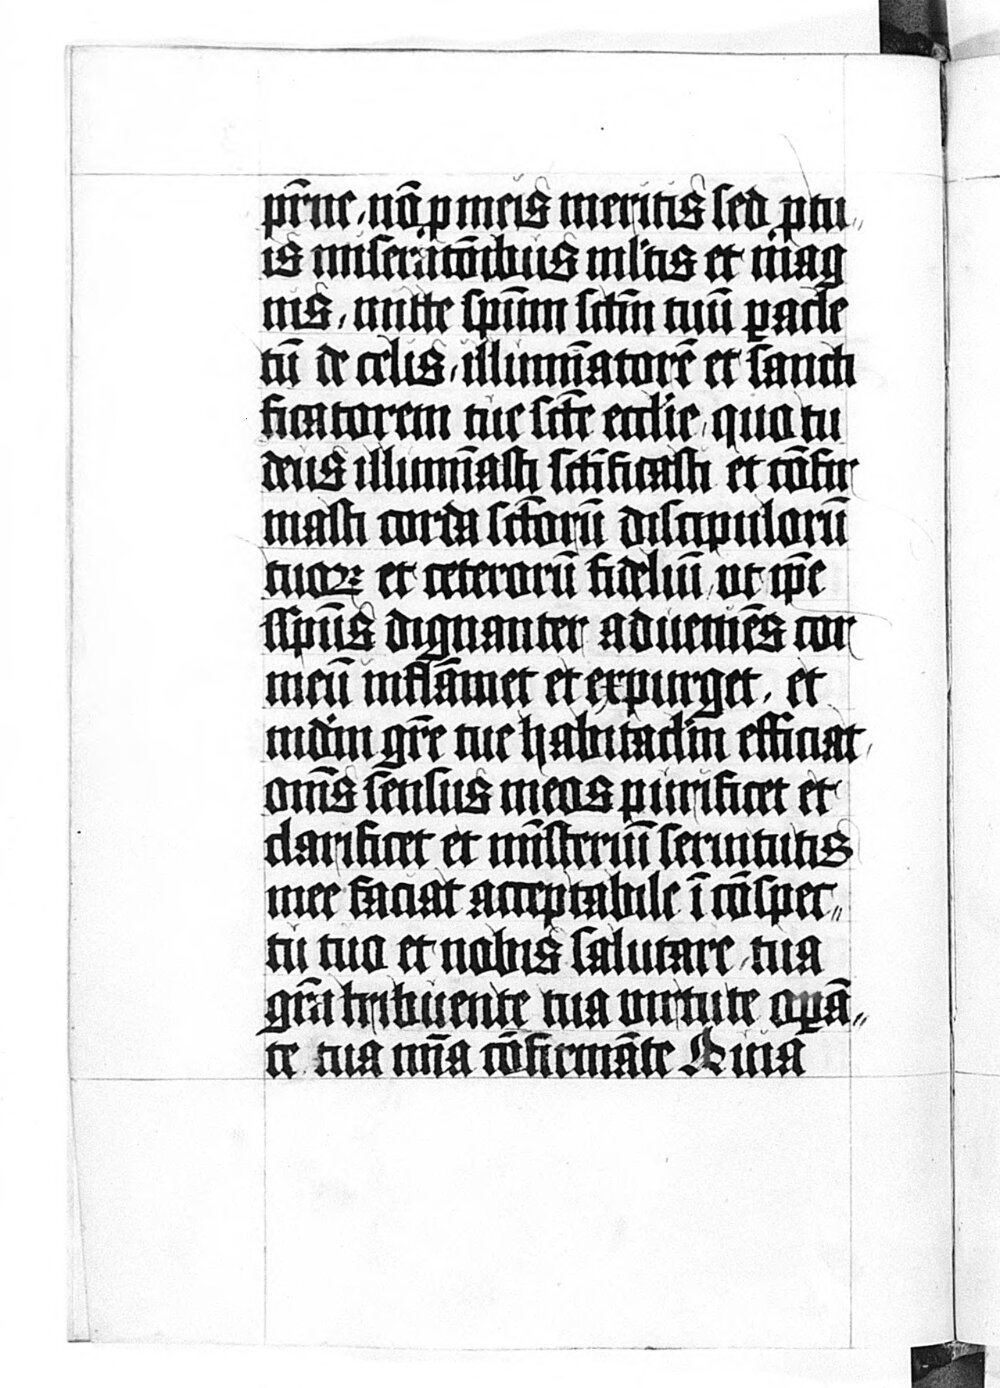 pr̄ne, nō p meis meritis sed ptu„
is miserac̄onibus ml'tis et mag
nis, mitte sp̄um sct̄m tuū paracle
tū de celis, illuminatorē et sancti
ficatorem tue sct̄e eccl'ie, quo tu
deus illuminasti sct̄ificasti et cōfir
masti corda sct̄orū discipulorū
tuoꝝ et ceterorū fideliū, ut ip̄e
sp̄us dignanter adueniēs cor
meū inflāmet et expurget, et
mūdm̄ gr̄e tue habitaclm̄ efficiat,
om̄s sensus meos purificet et
clarificet et mīsteriū seruitutis
mee faciat acceptabile ī cōspec„
tu tuo et nobis salutare, tua
gr̄a tribuente tua uirtute opā„
te tua mīa cōfirmāte Quia